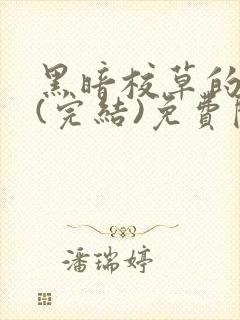 黑暗校草的
(完結)免費
潘瑞婷